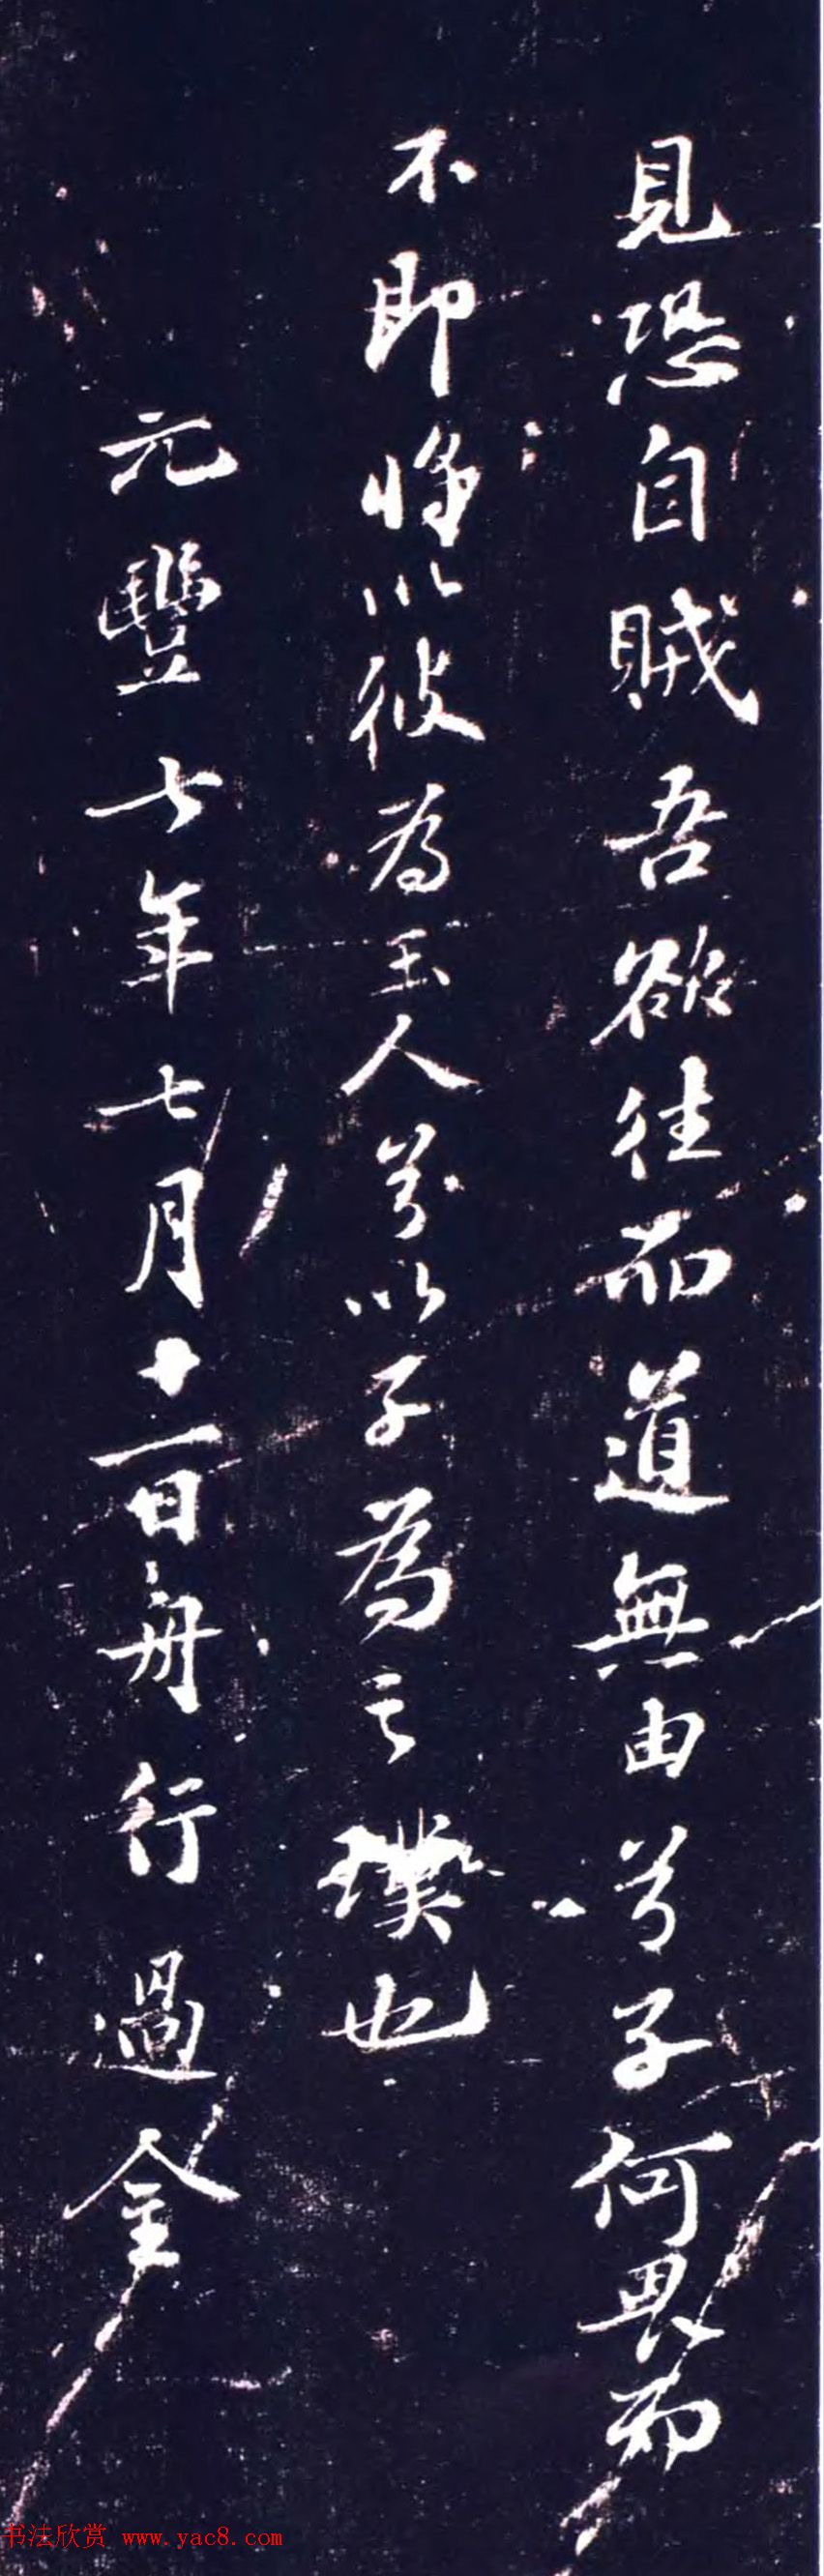 見恐自賊吾欲往而道無由兮子何畏而
不即將以彼為玉人兮以子為之璞也
元豐七年七月十一日舟行過金
书法欣赏 www.yac8.com